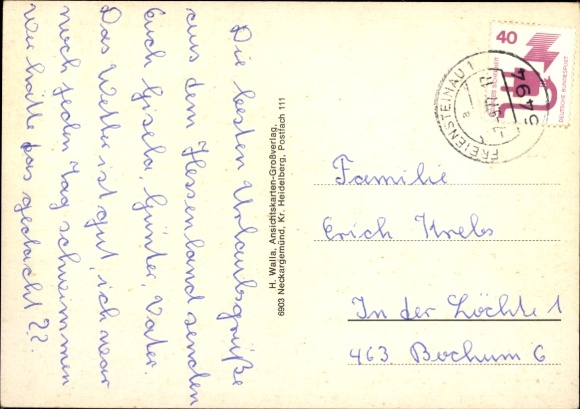 Die besten Urlaubsgrüße
aus dem Hessenland senden
Euch Gisela, Günter, Vater.
Das Wetter ist gut, ich war
noch jeden Tag schwimmen
wer hätte das gedacht??
H. Walla, Ansichtskarten-Großverlag,
6903 Neckargemünd, Kr. Heidelberg, Postfach 111
40
DEUTSCHE BUNDESPOST
6494
FREIENSTEINAU 1
Familie
Erich Krebs
In der Löchte 1
463 Bochum 6